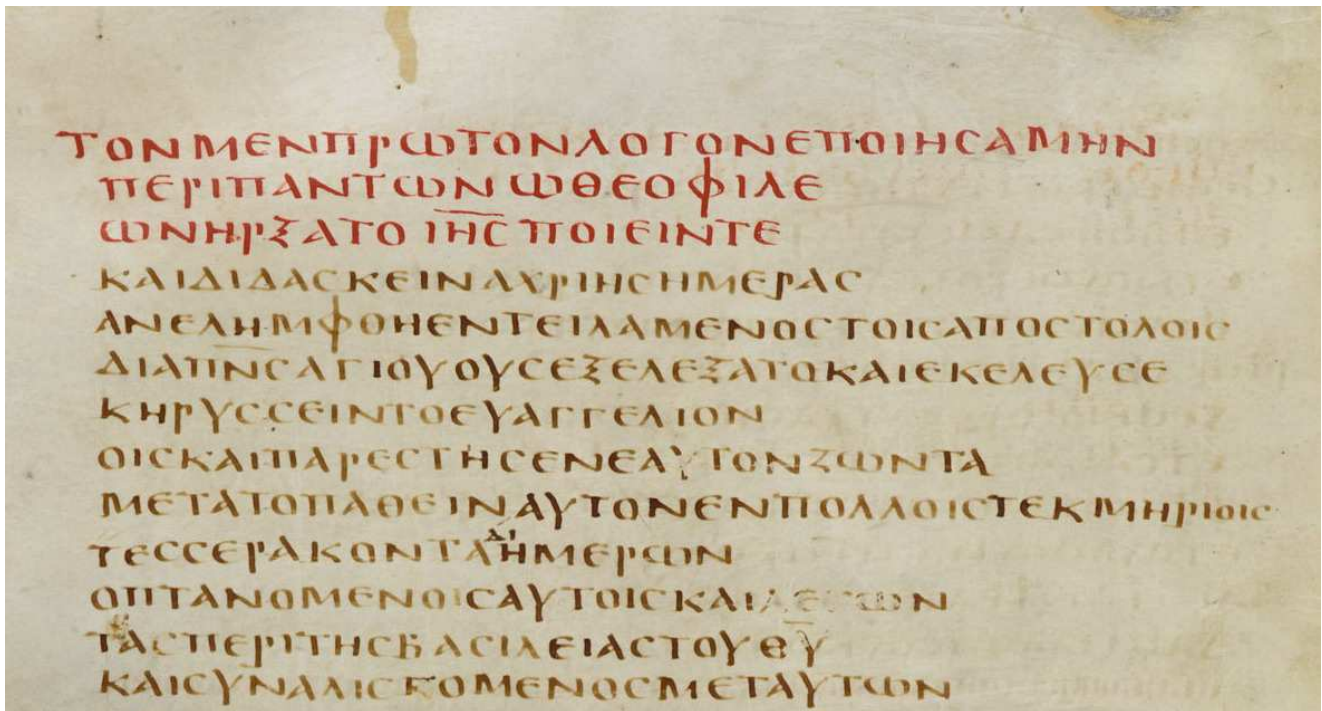 ΤΟΝΜΕΝΠΡΩΤΟΝΛΟΓΟΝΕΠΟΙΗСΑΜΗΝ
ΠΕΡΙΠΑΝΤΩΝΩΘΕΟΦΙΛΕ
ΩΝΗΡΞΑΤΟΙΗСΠΟΙΕΙΝΤΕ
ΚΑΙΔΙΔΑСΚΕΙΝΑΧΡΙΗСΗΜΕΡΑС
ΑΝΕΛΗΜΦΘΗΕΝΤΕΙΛΑΜΕΝΟСΤΟΙСΑΠΟСΤΟΛΟΙС
ΔΙΑΠΝСΑΓΙΟΥΟΥСΕΞΕΛΕΞΑΤΟΚΑΙΕΚΕΛΕΥСΕ
ΚΗΡΥССΕΙΝΤΟΕΥΑΓΓΕΛΙΟΝ
ΟΙСΚΑΙΠΑΡΕСΤΗСΕΝΕΑΥΤΟΝΖΩΝΤΑ
ΜΕΤΑΤΟΠΑΘΕΙΝΑΥΤΟΝΕΝΠΟΛΛΟΙСΤΕΚΜΗΡΙΟΙС
ΤΕССΕΡΑΚΟΝΤΑΗΜΕΡΩΝ
ΟΠΤΑΝΟΜΕΝΟΙСΑΥΤΟΙСΚΑΙΛΕΓΩΝ
ΤΑСΠΕΡΙΤΗСΒΑСΙΛΕΙΑСΤΟΥΘΥ
ΚΑΙСΥΝΑΛΙСΚΟΜΕΝΟСΜΕΤΑΥΤΩΝ